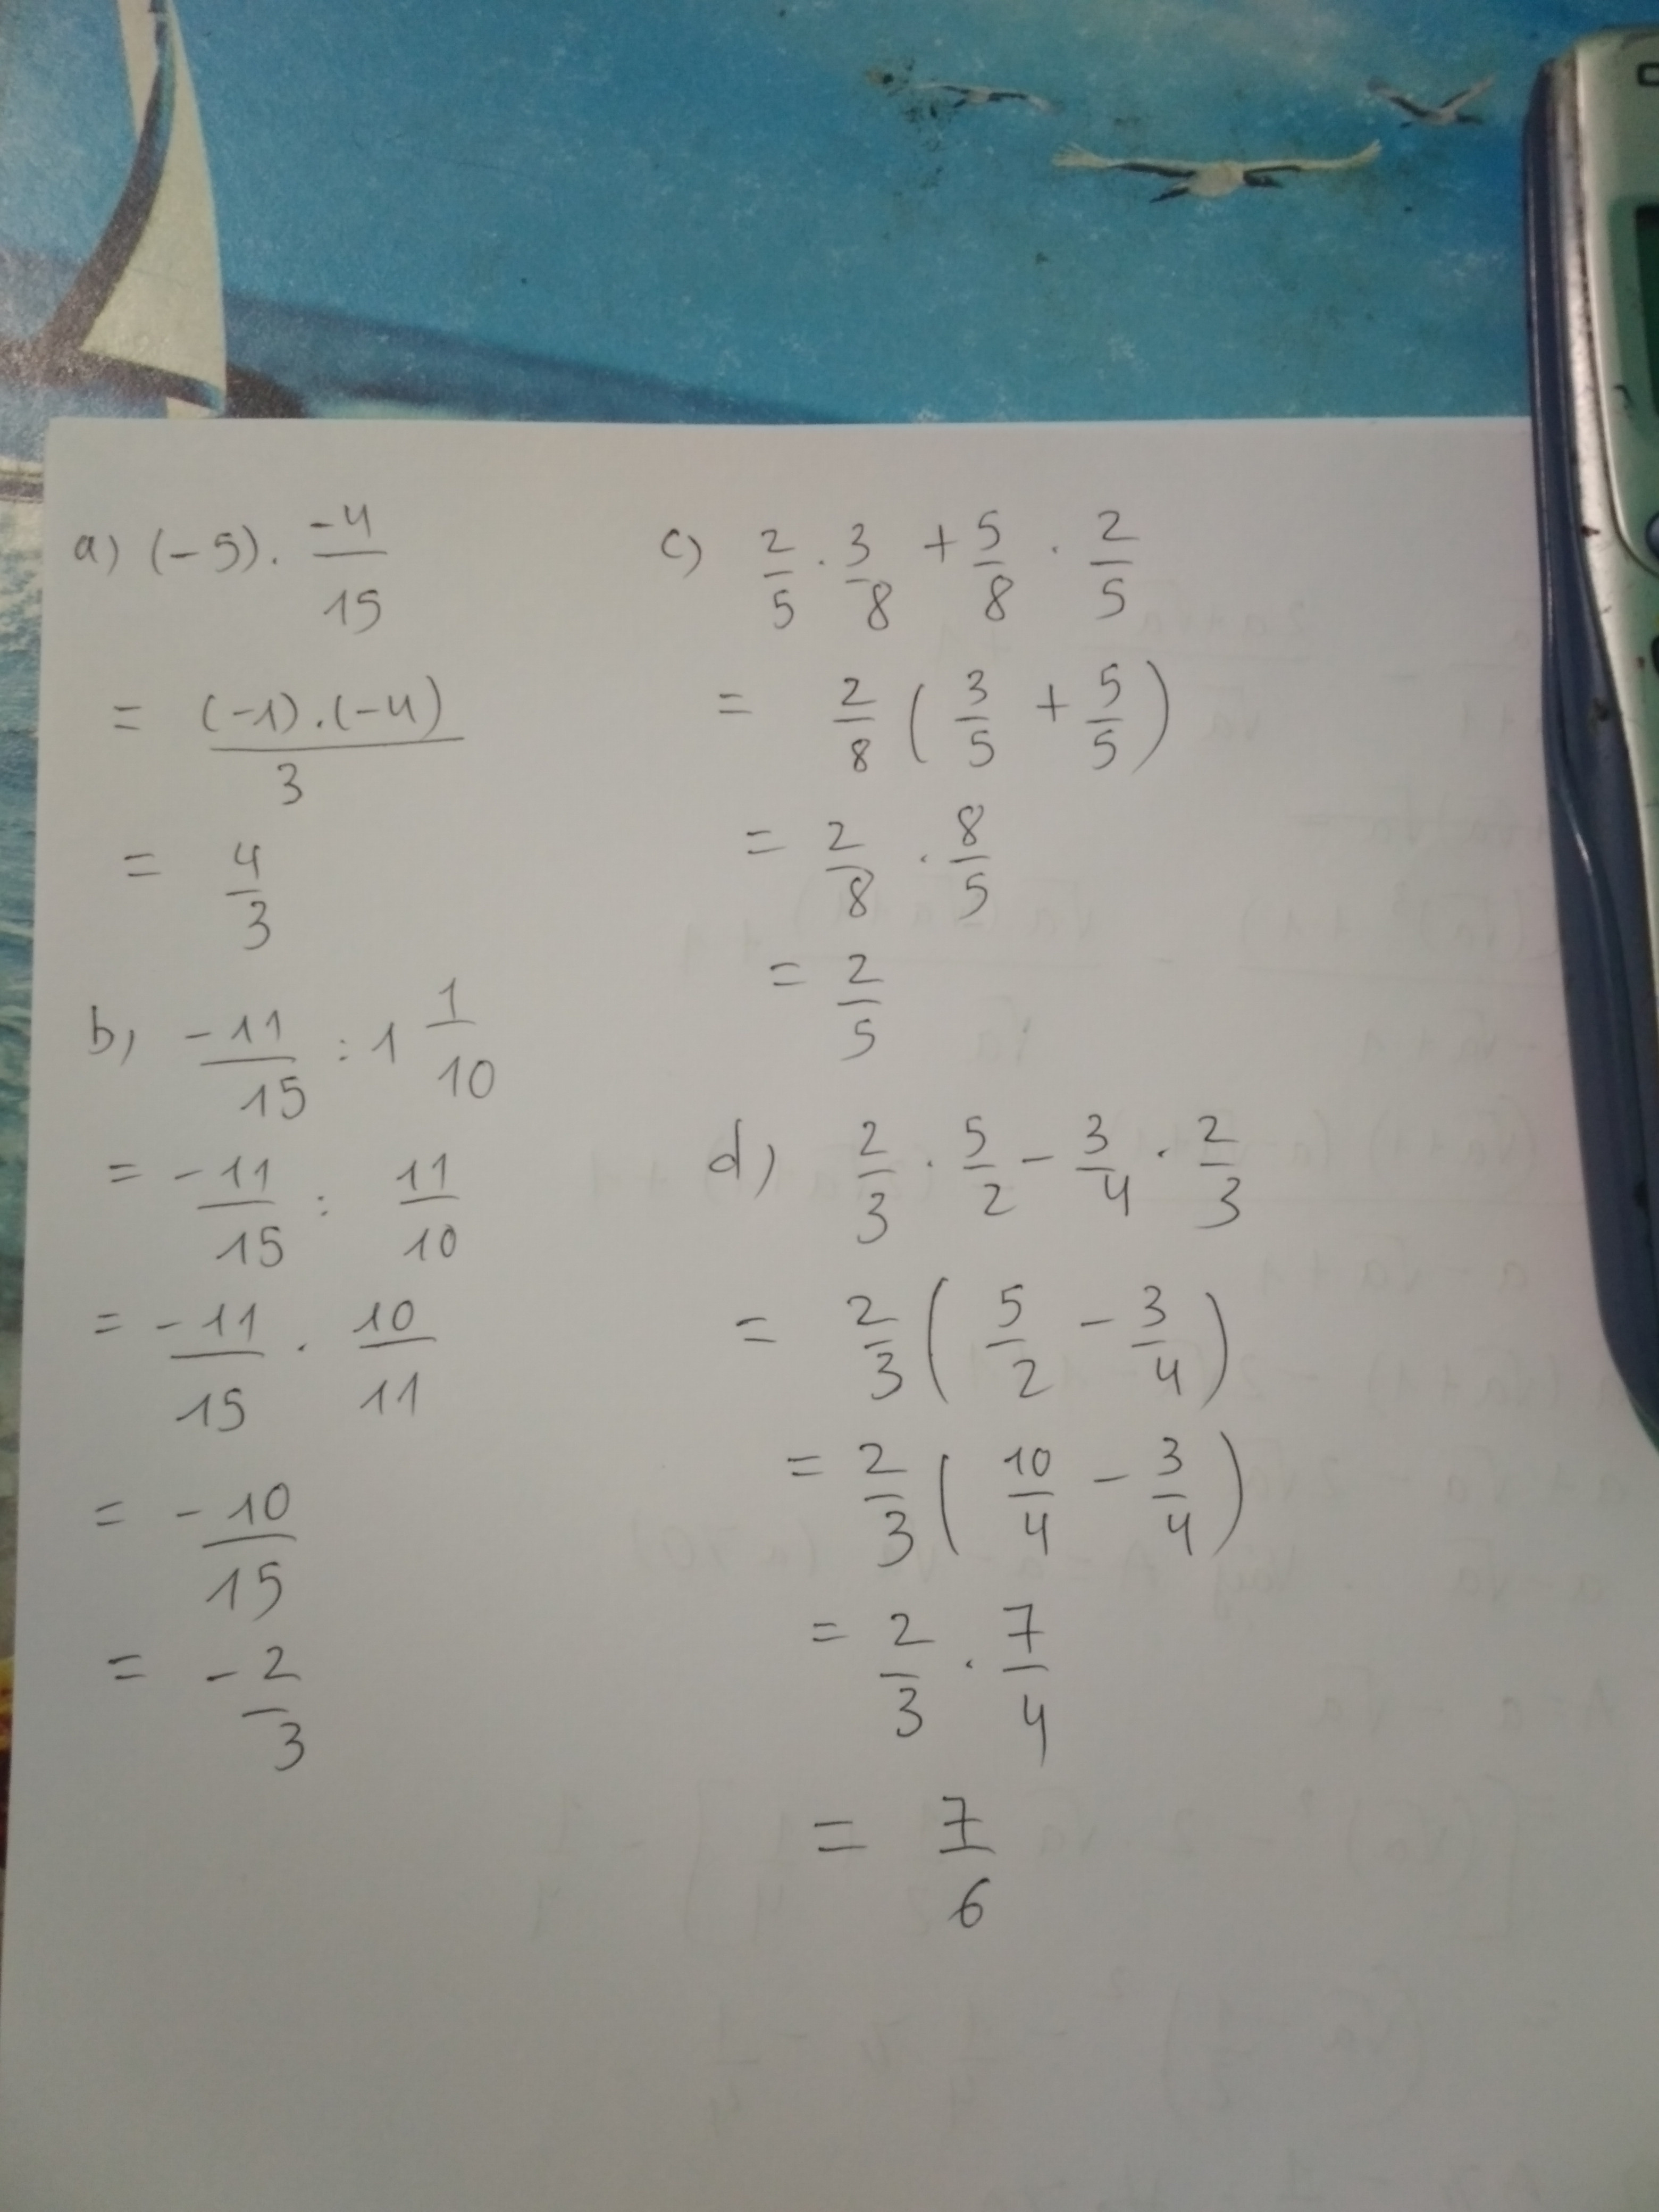 a) (-5) . -4/15
= (-1).(-4)/3
= 4/3
b) -11/15 : 1 1/10
= -11/15 : 11/10
= -11/15 . 10/11
= -10/15
= -2/3
c) 2/5 . 3/8 + 5/8 . 2/5
= 2/8 ( 3/5 + 5/5 )
= 2/8 . 8/5
= 2/5
d) 2/3 . 5/2 - 3/4 . 2/3
= 2/3 ( 5/2 - 3/4 )
= 2/3 ( 10/4 - 3/4 )
= 2/3 . 7/4
= 7/6